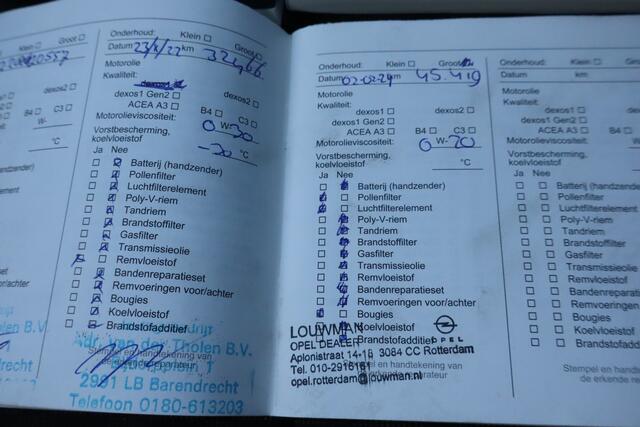 Klein Groot
km
Onderhoud: Klein Groot
Datum 23/5/22 km 32466
Motorolie
Kwaliteit:
dexos2
dexos1 Gen2
ACEA A3 B4 C3
Motorolieviscositeit: 0 W-30
Vorstbescherming, koelvloeistof -20 °C
Ja Nee
Batterij (handzender)
Pollenfilter
Luchtfilterelement
Poly-V-riem
Tandriem
Brandstoffilter
Gasfilter
Transmissieolie
Remvloeistof
Bandenreparatieset
Remvoeringen voor/achter
Bougies
Koelvloeistof
Brandstofadditief
Adr. van der Tholen B.V.
Stempel en handtekening van
2991 LB Barendrecht
Telefoon 0180-613203
Onderhoud: Klein Groot
Datum 02-02-24 km 45.419
Motorolie
Kwaliteit:
dexos1 dexos2
dexos1 Gen2
ACEA A3 B4 C3
Motorolieviscositeit: 0 W-20
Vorstbescherming, koelvloeistof °C
Ja Nee
Batterij (handzender)
Pollenfilter
Luchtfilterelement
Poly-V-riem
Tandriem
Brandstoffilter
Gasfilter
Transmissieolie
Remvloeistof
Bandenreparatieset
Remvoeringen voor/achter
Bougies
Koelvloeistof
Brandstofadditief
LOUWMAN
OPEL DEALER
OPEL
Aplonistraat 14-16 3084 CC Rotterdam
Stempel en handtekening van
Tel. 010-2916161
de erkende reparateur
opel.rotterdam@louwman.nl
Onderhoud: Klein
Datum km
Motorolie
Kwaliteit:
dexos1
dexos1 Gen2
ACEA A3
Motorolieviscositeit:
Vorstbescherming, koelvloeistof
Ja Nee
Batterij (handzender)
Pollenfilter
Luchtfilterelement
Poly-V-riem
Tandriem
Brandstoffilter
Gasfilter
Transmissieolie
Remvloeistof
Bandenreparatieset
Remvoeringen voor/
Bougies
Koelvloeistof
Brandstofadd
Stempel en hand
de erkende